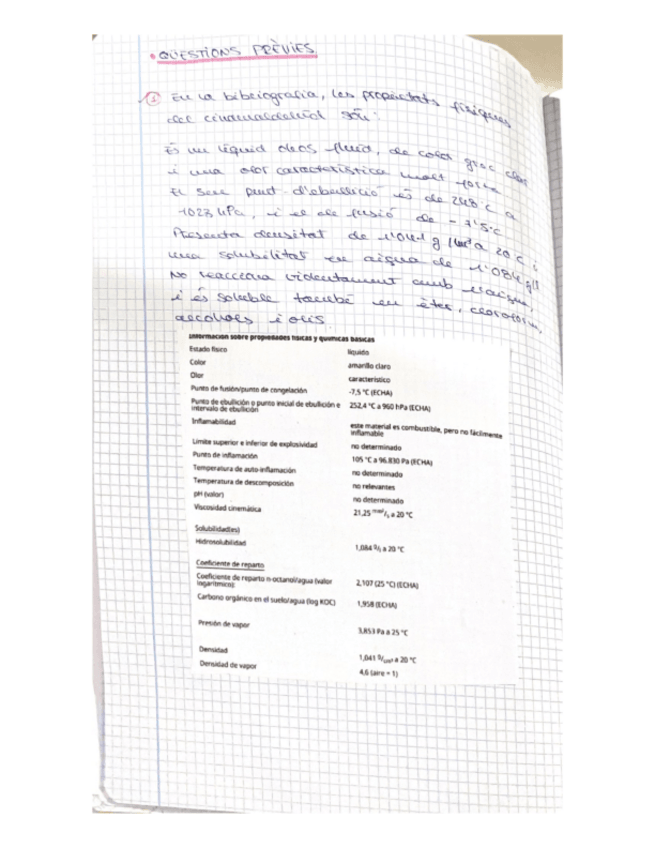 • QÜESTIONS PRÈVIES.
① En la bibliografia, les propietats físiques
del cinamaldehid són:
És un líquid oleós fluid, de color groc clar
i una olor característica molt forta.
El seu punt d'ebullició és de 248°C a
1023 hPa, i el de fusió de -7'5°C
Presenta densitat de 1'041 g/cm³ a 20°C i
una solubilitat en aigua de 1'084 g/l
No reacciona violentament amb l'aigua,
i és soluble també en èter, cloroform,
alcohols i olis.
Información sobre propiedades físicas y químicas básicas
Estado físico líquido
Color amarillo claro
Olor característico
Punto de fusión/punto de congelación -7,5 °C (ECHA)
Punto de ebullición o punto inicial de ebullición e
intervalo de ebullición 252,4 °C a 960 hPa (ECHA)
Inflamabilidad este material es combustible, pero no fácilmente
inflamable
Límite superior e inferior de explosividad no determinado
Punto de inflamación 105 °C a 96.830 Pa (ECHA)
Temperatura de auto-inflamación no determinado
Temperatura de descomposición no relevantes
pH (valor) no determinado
Viscosidad cinemática 21,25 mm²/s a 20 °C
Solubilidad(es)
Hidrosolubilidad 1,084 g/l a 20 °C
Coeficiente de reparto
Coeficiente de reparto n-octanol/agua (valor
logarítmico): 2,107 (25 °C) (ECHA)
Carbono orgánico en el suelo/agua (log KOC) 1,958 (ECHA)
Presión de vapor 3,853 Pa a 25 °C
Densidad 1,041 g/cm³ a 20 °C
Densidad de vapor 4,6 (aire = 1)